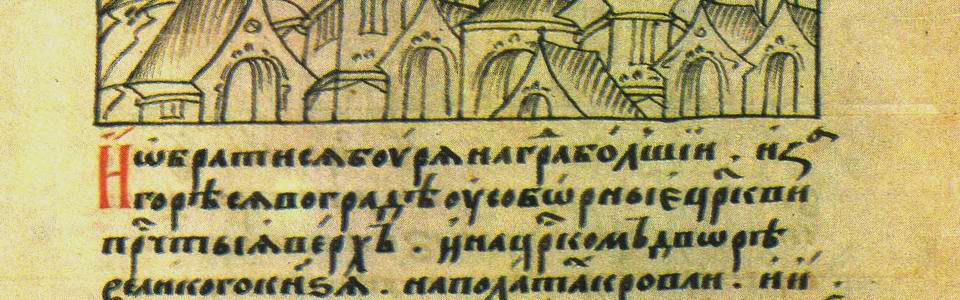 Иѡбратисѧбоурѧнаграбо́лшїи . изⷶ
горѣсѧвоградѣоусобѡрныѧцр҃кви
пр҃чтыѧве́рхъ . инацр҃комъдворѣ
великогокнѧзѧ . наполатⷶкровли . ии